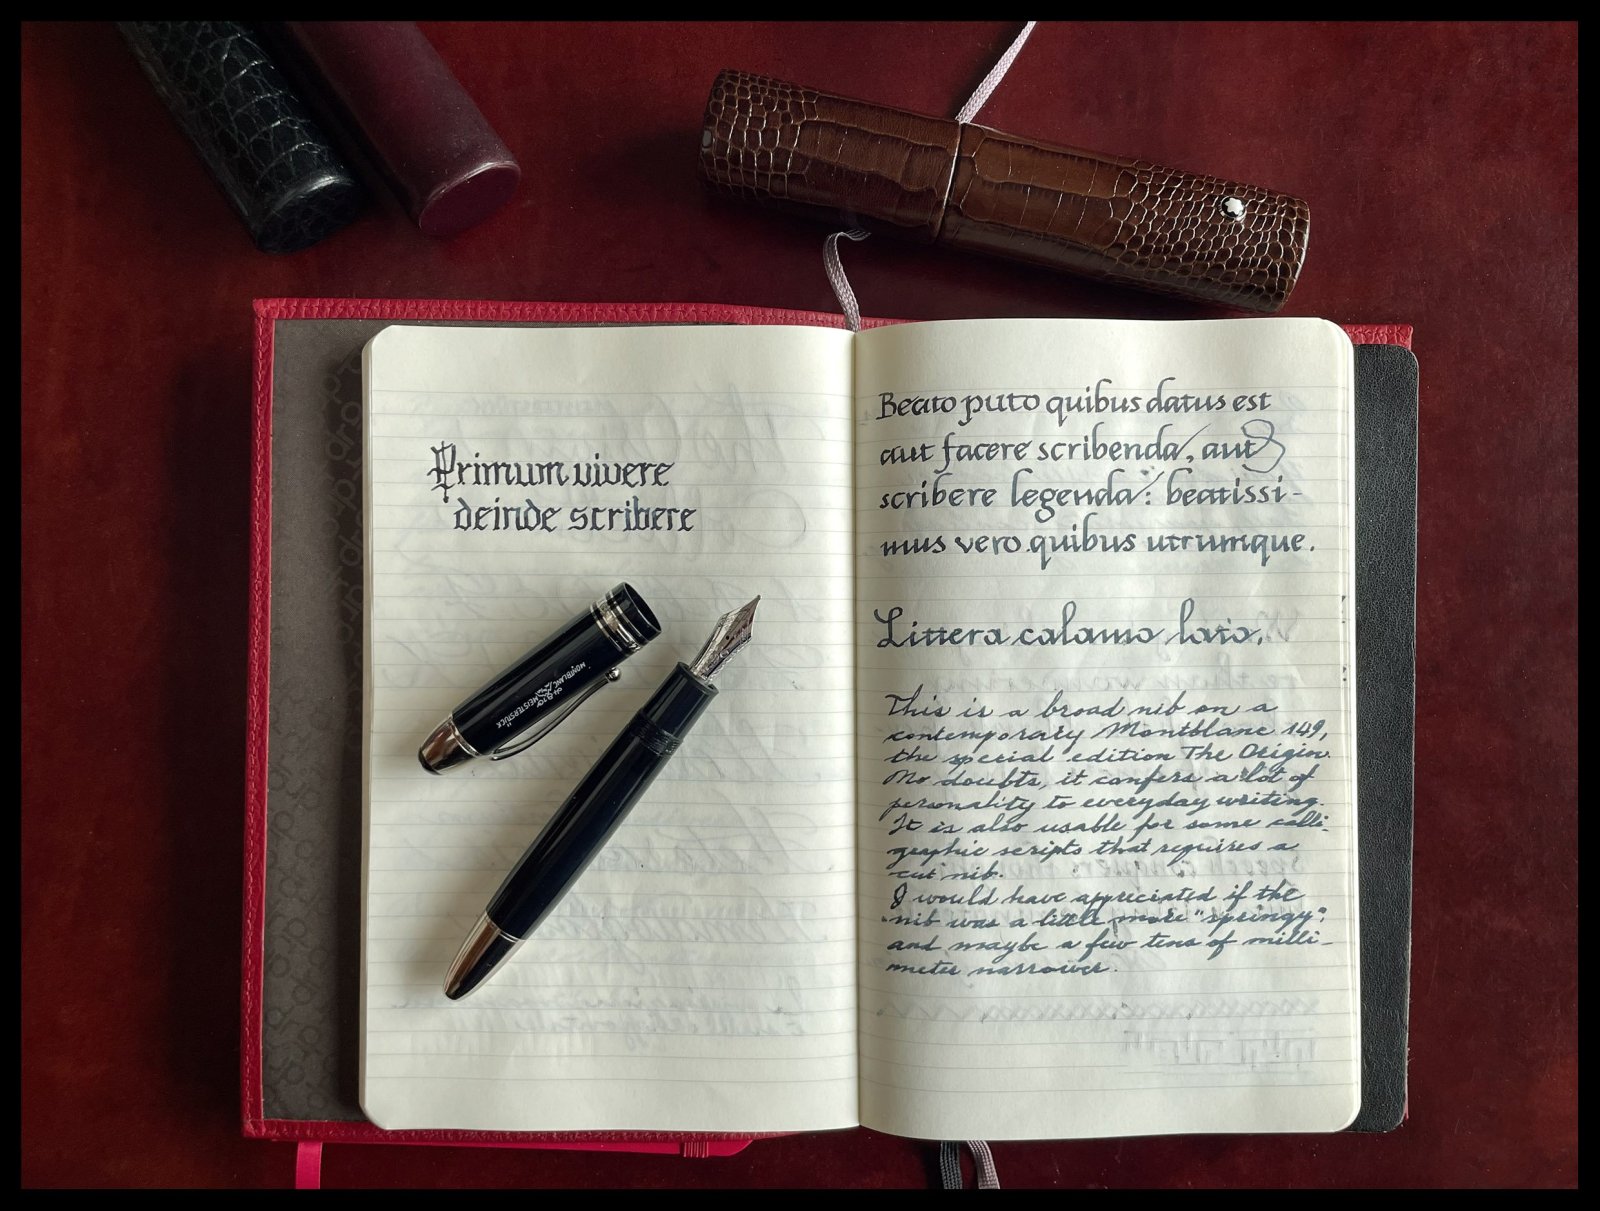 Primum vivere
deinde scribere
MONTBLANC
MEISTERSTÜCK
Beato puto quibus datus est
aut facere scribenda, aut
scribere legenda: beatissi-
mus vero quibus utrumque.
Littera calamo lato.
This is a broad nib on a
contemporary Montblanc 149,
the special edition The Origin.
No doubts, it confers a lot of
personality to everyday writing.
It is also usable for some calli-
graphic scripts that requires a
cut nib.
I would have appreciated if the
nib was a little more "springy",
and maybe a few tens of milli-
meter narrower.